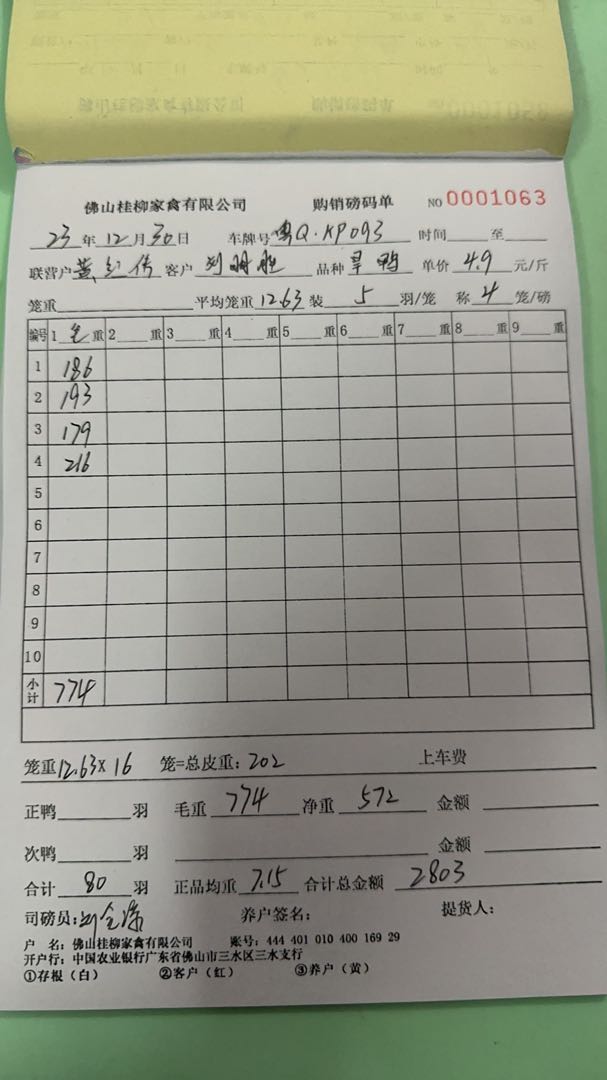 佛山桂柳家禽有限公司 购销磅码单 NO 0001063
23年12月30日 车牌号粤Q·KP093 时间 至
联营户黄 客户刘 品种旱鸭 单价4.9元/斤
笼重 平均笼重12.63装5羽/笼 称4笼/磅
编号 1毛重 2重 3重 4重 5重 6重 7重 8重 9重
1 186
2 193
3 179
4 216
5
6
7
8
9
10
小计 774
笼重12.63×16 笼=总皮重:202 上车费
正鸭 羽 毛重774 净重572 金额
次鸭 羽 金额
合计80羽 正品均重7.15 合计总金额2803
司磅员:刘 养户签名: 提货人:
户 名:佛山桂柳家禽有限公司 账号:444 401 010 400 169 29
开户行:中国农业银行广东省佛山市三水区三水支行
①存根(白) ②客户(红) ③养户(黄)